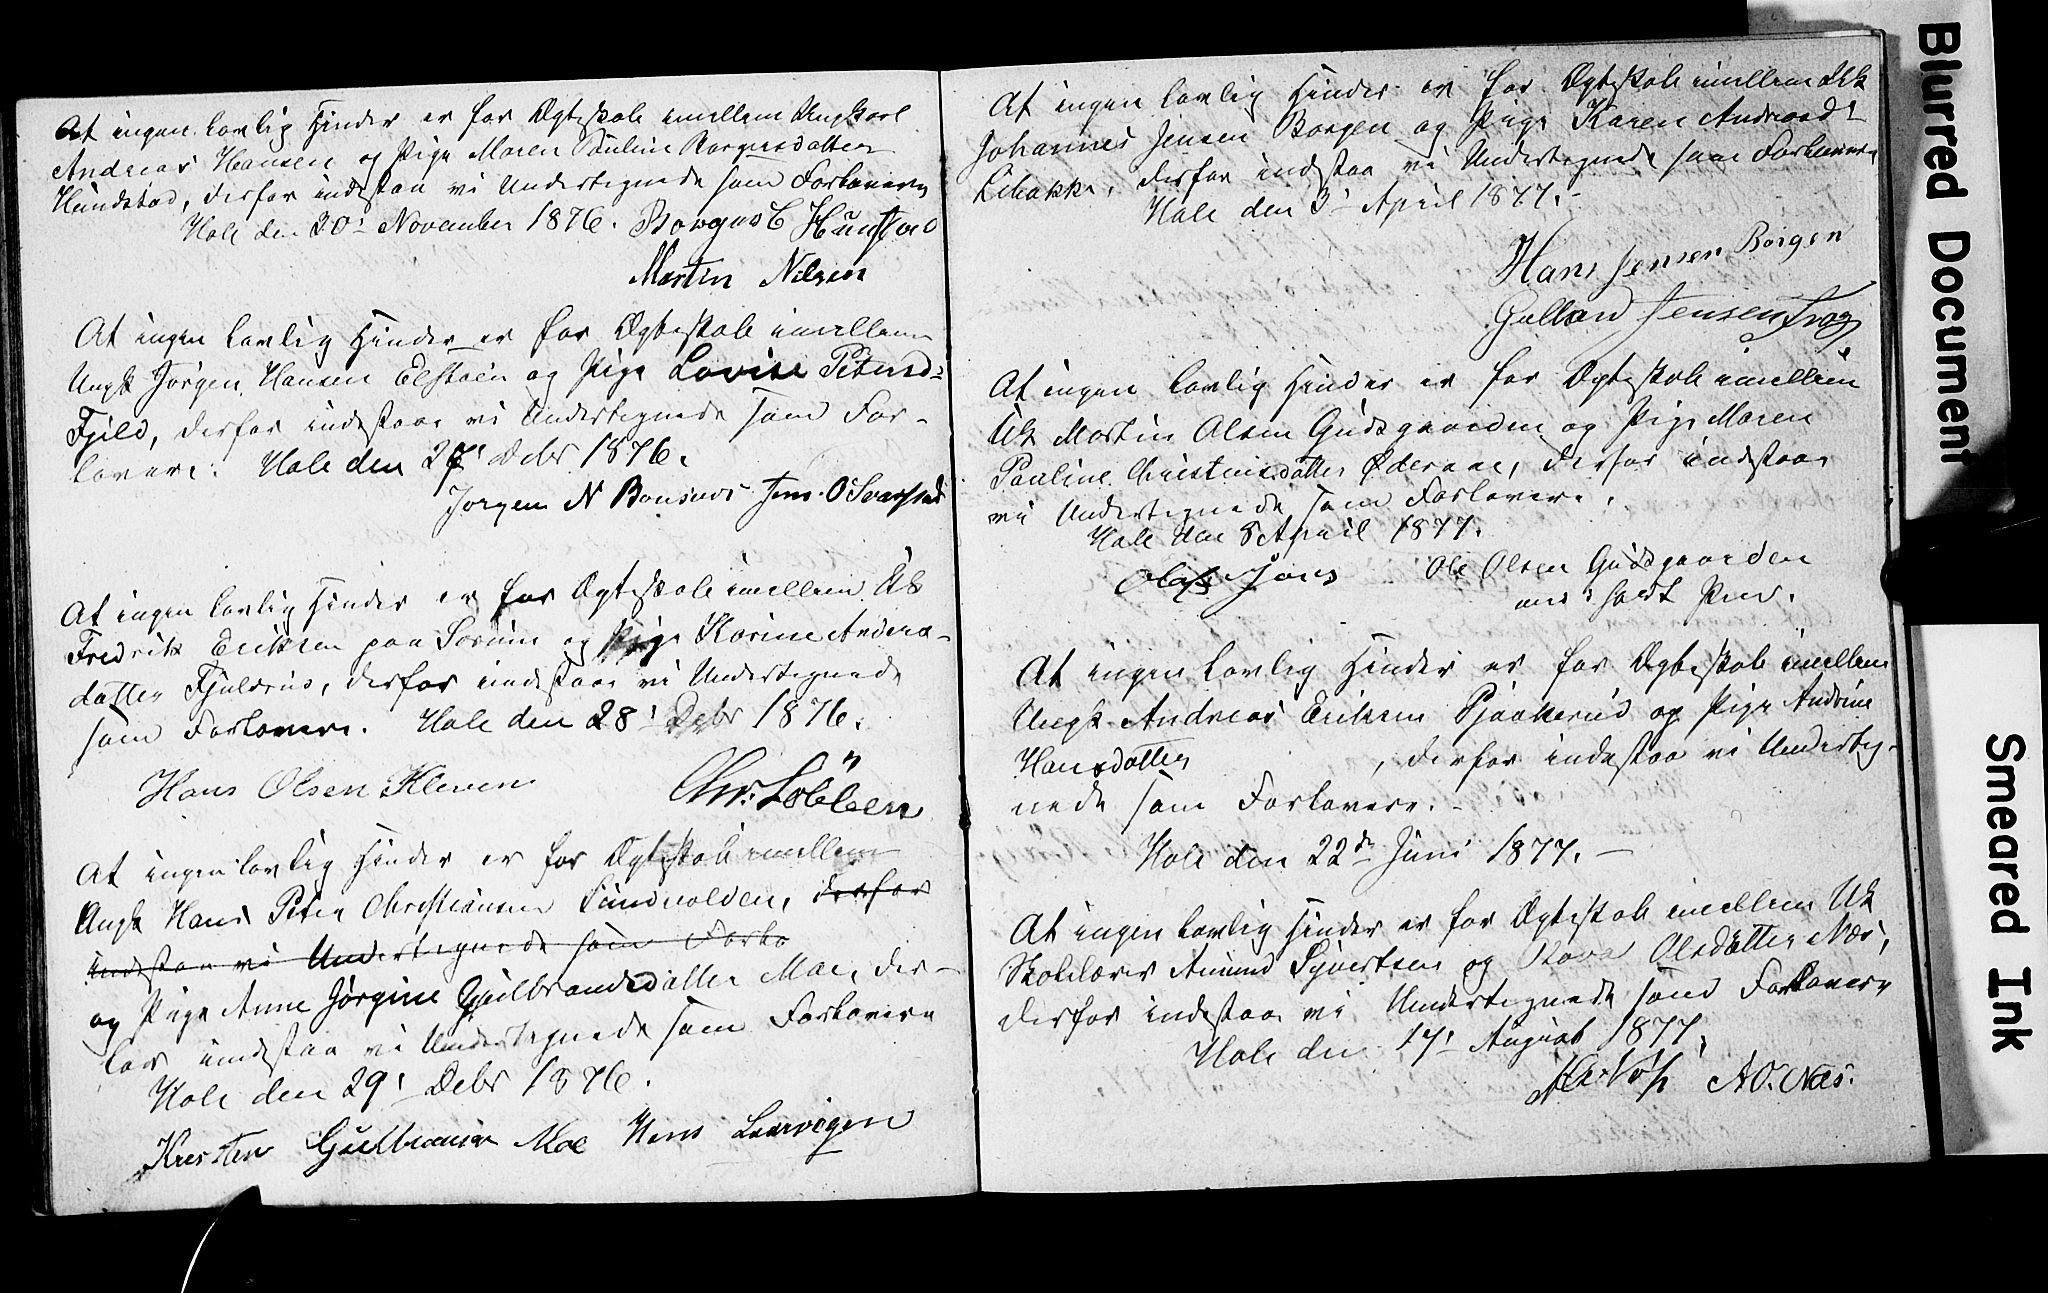 At ingen lovlig Hinder er for Ægteskab imellem Ungkarl
Andreas Hansen og Pige Maren Pauline Borgersdatter
Hundstad, derfor indestaa vi Undertegnede som Forlovere
Hole den 30' November 1876. Borger C Hunstad
Martin Nilsen
At ingen lovlig Hinder er for Ægteskab imellem
Ungk Jørgen Hansen Elstøen og Pige Lovise Petersd:
Fjeld, derfor indestaa vi Undertegnede som For-
lovere. Hole den 27' Debr 1876.
Jorgen N Bonsnes Jens O Svarstad
At ingen lovlig Hinder er for Ægteskab imellem Uk
Fredrik Eriksen paa Sørum og Pige Karine Anders-
datter Fjulsrud, derfor indestaa vi Undertegnede
som Forlovere. Hole den 28' Debr 1876.
Hans Olsen Kleven Chr. Løbben
At ingen lovlig Hinder er for Ægteskab imellem
Ungk Hans Peter Christiansen Sundvolden, derfor
indestaa vi Undertegnede som Forlo
og Pige Anne Jørgine Gulbrandsdatter Moe, der-
for indestaa vi Undertegnede som Forlovere
Hole den 29' Debr 1876.
Kresten Gulbransen Moe Hans Leervigen
At ingen lovlig Hinder er for Ægteskab imellem Ugk
Johannes Jensen Borgen og Pige Karen Andreasd:
Libakke, derfor indestaa vi Undertegnede som Forlovere
Hole den 3' April 1877.
Hans Jensen Borgen
Gulbran Jensen
At ingen lovlig Hinder er for Ægteskab imellem
Uk Martin Olsen Gudsgaarden og Pige Maren
Pauline Christensdatter Øderaae, derfor indestaa
vi Undertegnede som Forlovere.
Hole den 8 April 1877.
Olaf Ole Olsen Gudsgaarden
med holdt Pen.
At ingen lovlig Hinder er for Ægteskab imellem
Ungk Andreas Eriksen Pjaakerud og Pige Andrine
Hansdatter , derfor indestaa vi Underteg-
nede som Forlovere.
Hole den 22de Juni 1877.
At ingen lovlig Hinder er for Ægteskab imellem Uk
Skolelærer Amund Syvertsen og Olsdatter Næs,
derfor indestaa vi Undertegnede som Forlovere
Hole den 17' August 1877.
A O. Næs.
Blurred Document
Smeared Ink